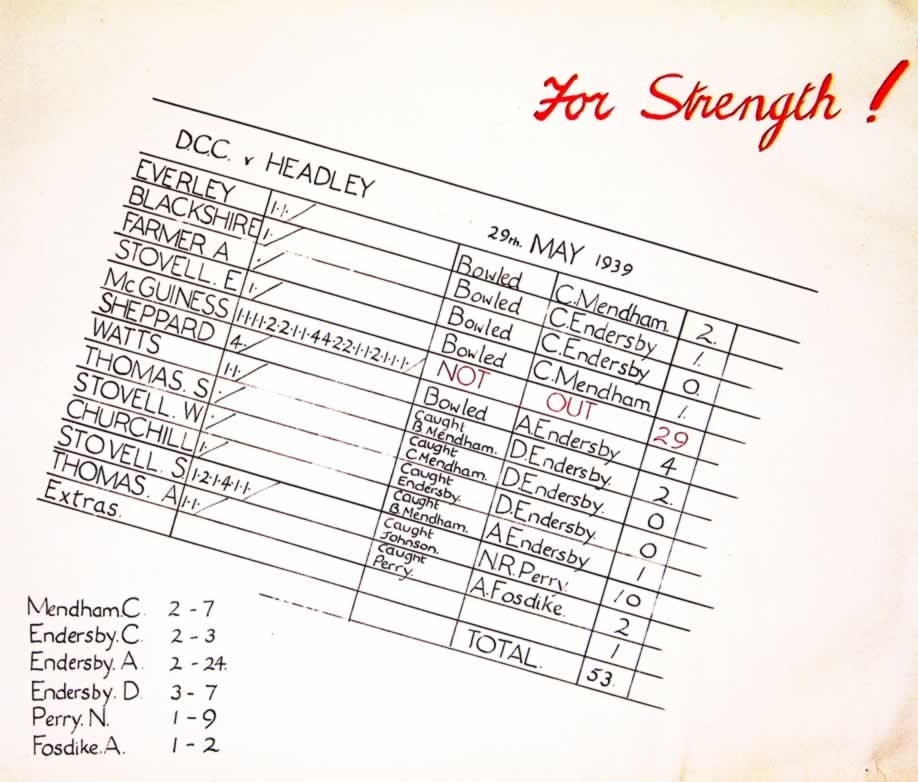 For Strength !
D.C.C. v HEADLEY 29th. MAY 1939
EVERLEY 1·1· Bowled C.Mendham. 2.
BLACKSHIRE 1· Bowled C.Endersby 1.
FARMER A · Bowled C.Endersby 0.
STOVELL. E 1· Bowled C.Mendham 1.
McGUINESS 1·1·1·1·2·2·1·1·4·4·2·2·1·1·2·1·1·1· NOT OUT 29
SHEPPARD 4· Bowled A.Endersby 4
WATTS 1·1· Caught B.Mendham. D.Endersby. 2.
THOMAS. S · Caught C.Mendham. D.Endersby. 0
STOVELL. W · Caught Endersby. D.Endersby 0
CHURCHILL 1· Caught B.Mendham. A.Endersby 1
STOVELL. S 1·2·1·4·1·1· Caught Johnson. N.R.Perry. 10
THOMAS. A 1·1· Caught Perry. A.Fosdike. 2
Extras. 1
TOTAL. 53.
Mendham.C. 2 - 7
Endersby.C. 2 - 3
Endersby. A. 2 - 24.
Endersby. D. 3 - 7
Perry. N. 1 - 9
Fosdike.A. 1 - 2